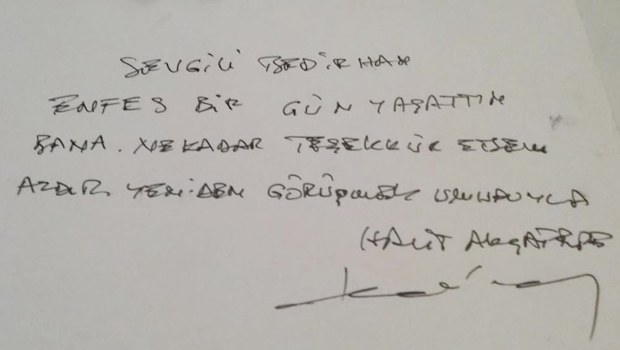 SEVGİLİ BEDİRHAN
ENFES BİR GÜN YAŞATTIN
BANA. NEKADAR TEŞEKKÜR ETSEM
AZDIR. YENİDEN GÖRÜŞMEK UMUDUYLA
HALİT AKÇATEPE